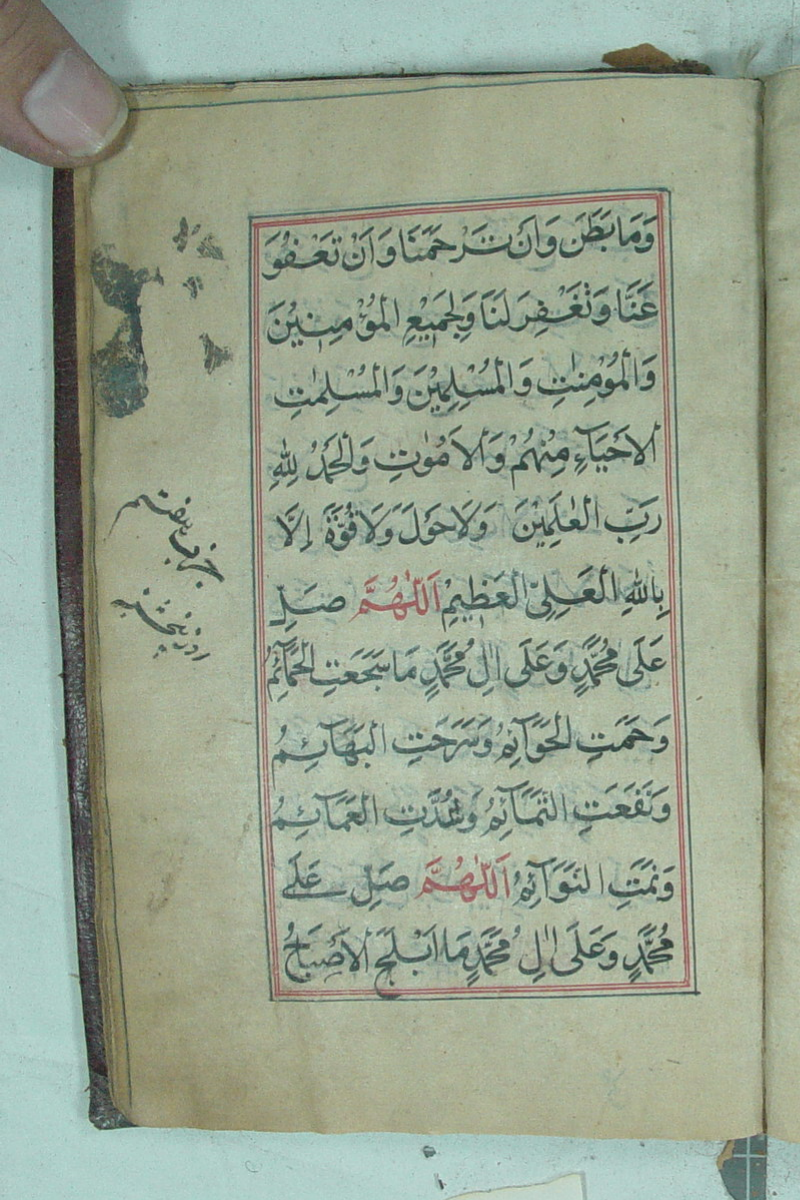 وَمَا بَطَنَ وَاَنْ تَرْحَمَنَا وَاَنْ تَعْفُوَ
عَنَّا وَتَغْفِرَ لَنَا وَلِجَمِيْعِ الْمُؤْمِنِيْنَ
وَالْمُؤْمِنٰتِ وَالْمُسْلِمِيْنَ وَالْمُسْلِمٰتِ
اَلْاَحْيَآءِ مِنْهُمْ وَالْاَمْوٰتِ وَالْحَمْدُ لِلّٰهِ
رَبِّ الْعٰلَمِيْنَ وَلَا حَوْلَ وَلَا قُوَّةَ اِلَّا
بِاللّٰهِ الْعَلِىِّ الْعَظِيْمِ اَللّٰهُمَّ صَلِّ
عَلٰى مُحَمَّدٍ وَعَلٰى اٰلِ مُحَمَّدٍ مَا سَجَعَتِ الْحَمَآئِمُ
وَحَمَتِ الْحَوَآئِمُ وَسَرَحَتِ الْبَهَآئِمُ
وَنَفَعَتِ التَّمَآئِمُ وَشُدَّتِ الْعَمَآئِمُ
وَنَمَتِ النَّوَآئِمُ اَللّٰهُمَّ صَلِّ عَلٰى
مُحَمَّدٍ وَعَلٰى اٰلِ مُحَمَّدٍ مَا اَبْلَجَ الْاَصْبَاحُ
حزب هفتم
روز پنجشنبه